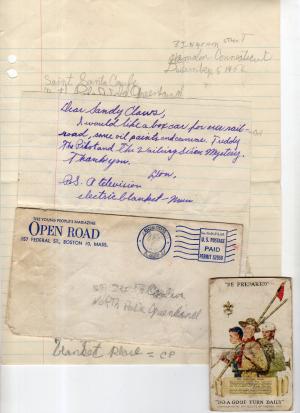 Hamden, Connecticut
December 5 1952
Saint Santa Claus
Dear Sandy Claws,
I would like a box car for our rail-
road, some oil paints and canvas. Teddy
The Pilot and The Wailing Siren Mystery.
Thank you.
Don.
P.S. A television
electric blanket - Mum
THE YOUNG PEOPLE'S MAGAZINE
OPEN ROAD
157 FEDERAL ST., BOSTON 10, MASS.
U.S. POSTAGE
PAID
North Pole Greenland
blanket please =
"BE PREPARED"
"DO A GOOD TURN DAILY"